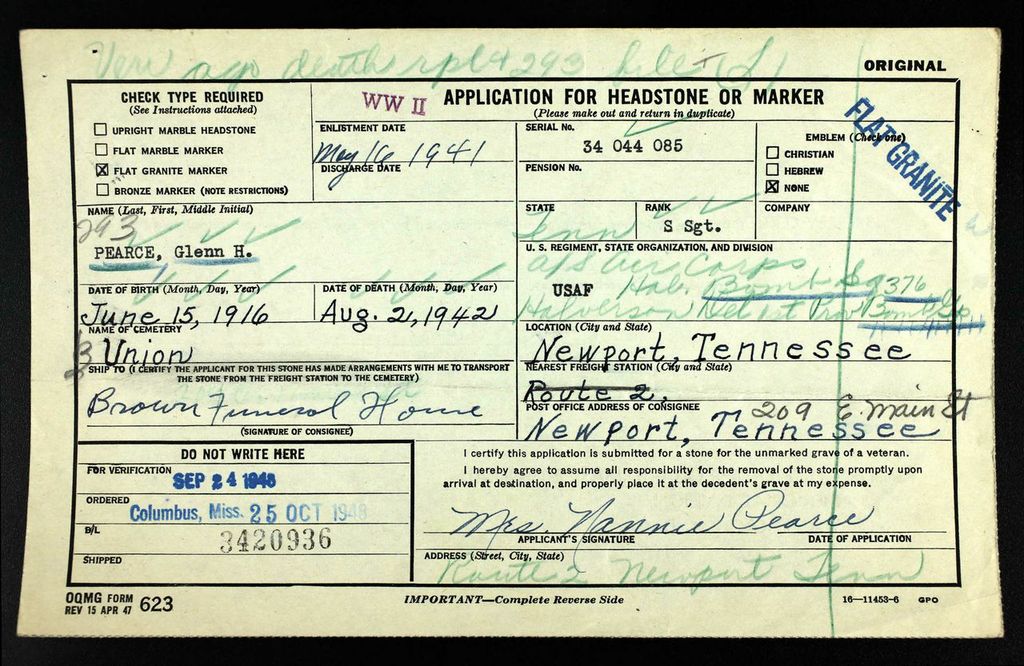 Very ago death rpl 4 293 file (L)
ORIGINAL
CHECK TYPE REQUIRED
(See Instructions attached)
UPRIGHT MARBLE HEADSTONE
FLAT MARBLE MARKER
FLAT GRANITE MARKER
BRONZE MARKER (NOTE RESTRICTIONS)
WW II
APPLICATION FOR HEADSTONE OR MARKER
(Please make out and return in duplicate)
ENLISTMENT DATE
May 16 1941
DISCHARGE DATE
SERIAL No.
34 044 085
PENSION No.
EMBLEM (Check one)
CHRISTIAN
HEBREW
NONE
FLAT GRANITE
NAME (Last, First, Middle Initial)
293
PEARCE, Glenn H.
STATE
Tenn
RANK
S Sgt.
COMPANY
U. S. REGIMENT, STATE ORGANIZATION, AND DIVISION
Air Corps
USAF Hal. Bomb Sq 376
Halverson Det Prov Bomb Gp
DATE OF BIRTH (Month, Day, Year)
June 15, 1916
DATE OF DEATH (Month, Day, Year)
Aug. 2, 1942
NAME OF CEMETERY
Union
LOCATION (City and State)
Newport, Tennessee
SHIP TO (I CERTIFY THE APPLICANT FOR THIS STONE HAS MADE ARRANGEMENTS WITH ME TO TRANSPORT
THE STONE FROM THE FREIGHT STATION TO THE CEMETERY)
Brown Funeral Home
(SIGNATURE OF CONSIGNEE)
NEAREST FREIGHT STATION (City and State)
Route 2,
POST OFFICE ADDRESS OF CONSIGNEE
209 E. Main St
Newport, Tennessee
DO NOT WRITE HERE
FOR VERIFICATION
SEP 24 1948
ORDERED
Columbus, Miss. 25 OCT 1948
B/L
3420936
SHIPPED
I certify this application is submitted for a stone for the unmarked grave of a veteran.
I hereby agree to assume all responsibility for the removal of the stone promptly upon
arrival at destination, and properly place it at the decedent's grave at my expense.
Mrs. Nannie Pearce
APPLICANT'S SIGNATURE
DATE OF APPLICATION
ADDRESS (Street, City, State)
Route 2 Newport Tenn
OQMG FORM
REV 15 APR 47 623
IMPORTANT—Complete Reverse Side
16—11453-6 GPO